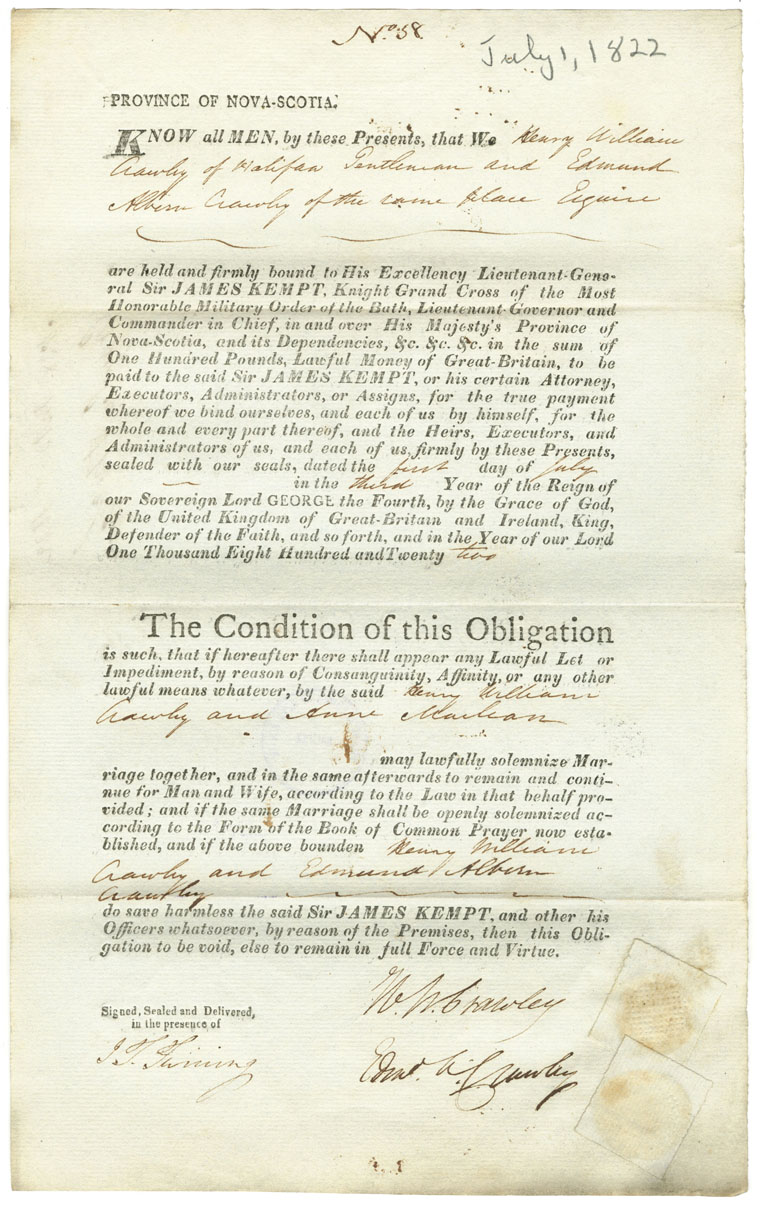 No 58
July 1, 1822
PROVINCE OF NOVA-SCOTIA.
KNOW all MEN, by these Presents, that We Henry William
Crawley of Halifax Gentleman and Edmund
Albern Crawley of the same place Esquire
are held and firmly bound to His Excellency Lieutenant-Gene-
ral Sir JAMES KEMPT, Knight Grand Cross of the Most
Honorable Military Order of the Bath, Lieutenant-Governor and
Commander in Chief, in and over His Majesty's Province of
Nova-Scotia, and its Dependencies, &c. &c. &c. in the sum of
One Hundred Pounds, Lawful Money of Great-Britain, to be
paid to the said Sir JAMES KEMPT, or his certain Attorney,
Executors, Administrators, or Assigns, for the true payment
whereof we bind ourselves, and each of us by himself, for the
whole and every part thereof, and the Heirs, Executors, and
Administrators of us, and each of us, firmly by these Presents,
sealed with our seals, dated the first day of July
in the third Year of the Reign of
our Sovereign Lord GEORGE the Fourth, by the Grace of God,
of the United Kingdom of Great-Britain and Ireland, King,
Defender of the Faith, and so forth, and in the Year of our Lord
One Thousand Eight Hundred and Twenty two
The Condition of this Obligation
is such, that if hereafter there shall appear any Lawful Let or
Impediment, by reason of Consanguinity, Affinity, or any other
lawful means whatever, by the said Henry William
Crawley and Anne
may lawfully solemnize Mar-
riage together, and in the same afterwards to remain and conti-
nue for Man and Wife, according to the Law in that behalf pro-
vided; and if the same Marriage shall be openly solemnized ac-
cording to the Form of the Book of Common Prayer now esta-
blished, and if the above bounden Henry William
Crawley and Edmund Albern
Crawley
do save harmless the said Sir JAMES KEMPT, and other his
Officers whatsoever, by reason of the Premises, then this Obli-
gation to be void, else to remain in full Force and Virtue.
H. W. Crawley
Signed, Sealed and Delivered,
in the presence of
Edmd. A. Crawley